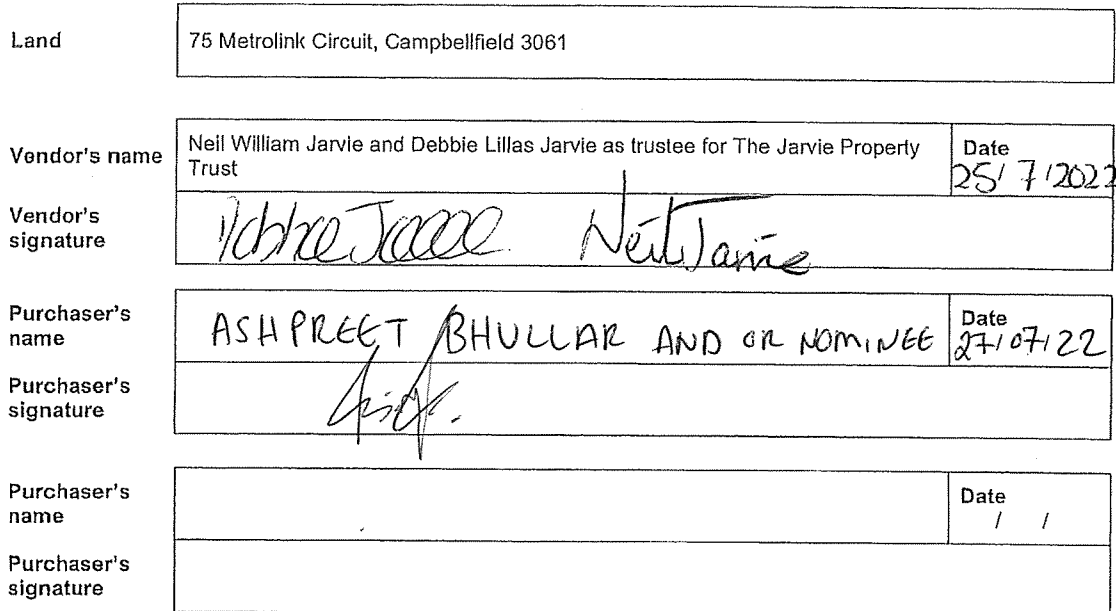 Land
75 Metrolink Circuit, Campbellfield 3061
Vendor's name
Neil William Jarvie and Debbie Lillas Jarvie as trustee for The Jarvie Property
Trust
Date
25/ 7 /2022
Vendor's
signature
Debbie Jarvie Neil Jarvie
Purchaser's
name
ASHPREET BHULLAR AND OR NOMINEE
Date
27/07/22
Purchaser's
signature
Purchaser's
name
Date
/ /
Purchaser's
signature